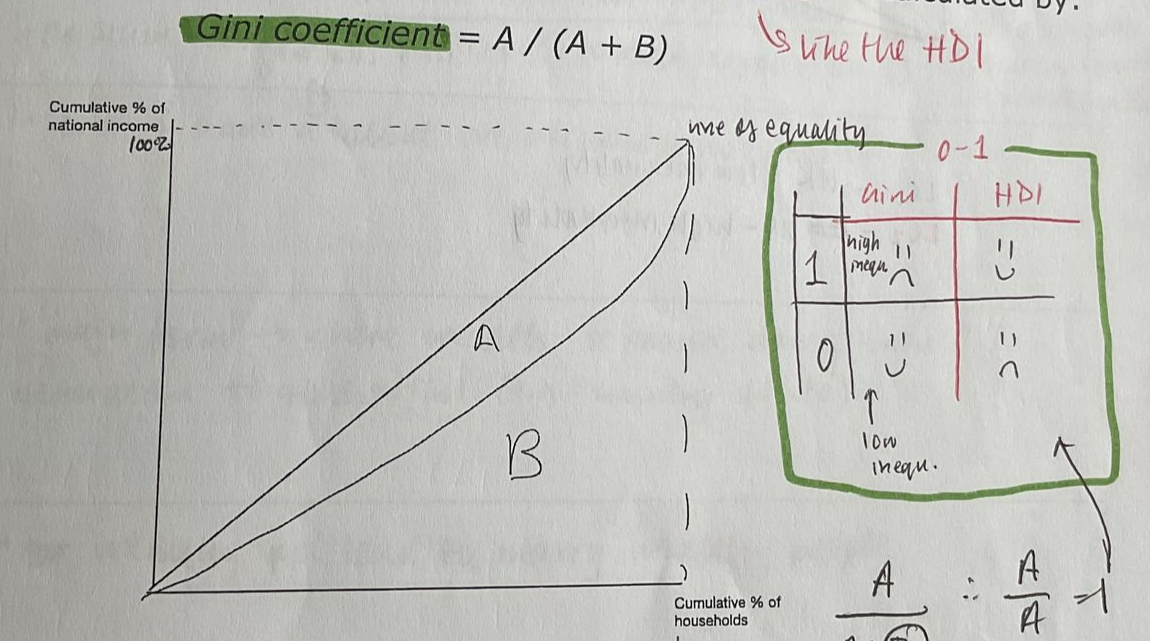 Gini coefficient = A / (A + B)
↳ like the HDI
Cumulative % of
national income
100%
line of equality
0-1
Gini HDI
1 high
inequ.
0
low
inequ.
A
B
Cumulative % of
households
A
∴ A
A = 1